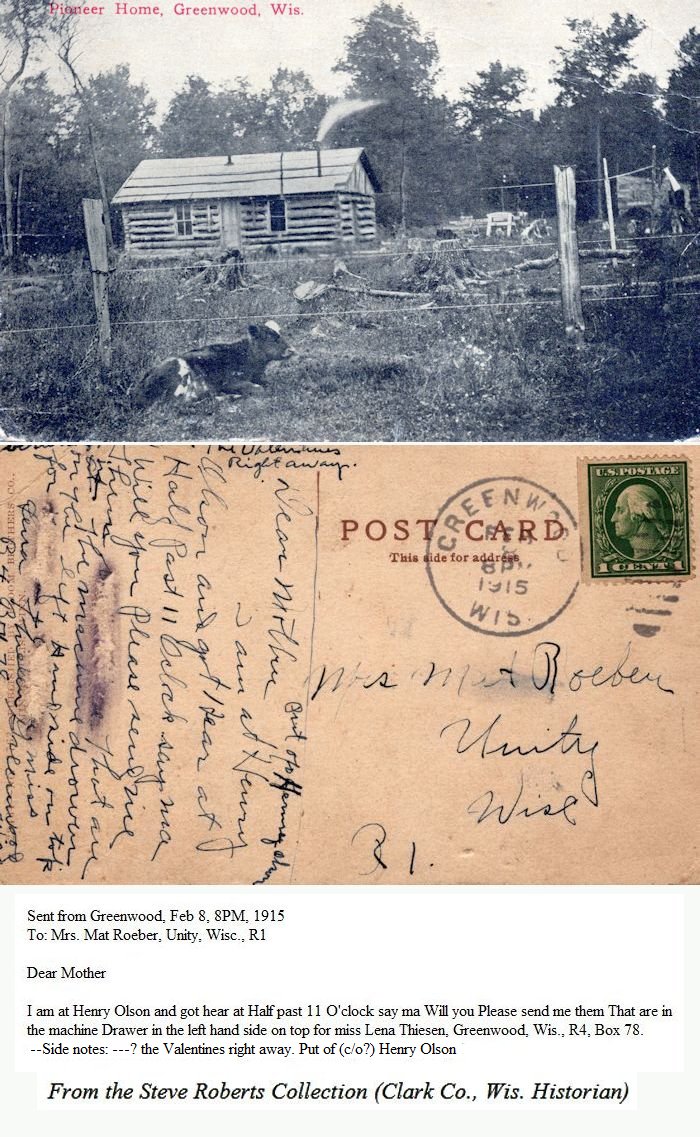 Pioneer Home, Greenwood, Wis.
The Valentines
Right away.
Dear Mother
I am at Henry
Olson and got hear at
Half Past 11 Oclock say ma
Will you Please send me
them That are
in the machine drower
on the left hand side on top
for miss
Lena Thiesen Greenwood
Put of Henry Olson
POST CARD
This side for address
GREENWOOD
FEB
8
8PM
1915
WIS.
U.S. POSTAGE
1 CENT 1
Mrs Mat Roeber
Unity
Wisc
R 1.
Sent from Greenwood, Feb 8, 8PM, 1915
To: Mrs. Mat Roeber, Unity, Wisc., R1
Dear Mother
I am at Henry Olson and got hear at Half past 11 O'clock say ma Will you Please send me them That are in
the machine Drawer in the left hand side on top for miss Lena Thiesen, Greenwood, Wis., R4, Box 78.
--Side notes: ---? the Valentines right away. Put of (c/o?) Henry Olson
From the Steve Roberts Collection (Clark Co., Wis. Historian)